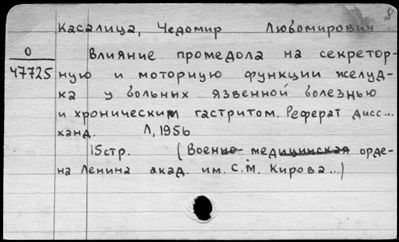 8
Касалица, Чедомир Любомирович
О
47725
Влияние промедола на секретор-
ную и моторную функции желуд-
ка у больных язвенной болезнью
и хроническим гастритом. Реферат дисс...
канд. Л, 1956
15 стр. (Военно медицинская орде-
на Ленина акад. им. С.М. Кирова...)